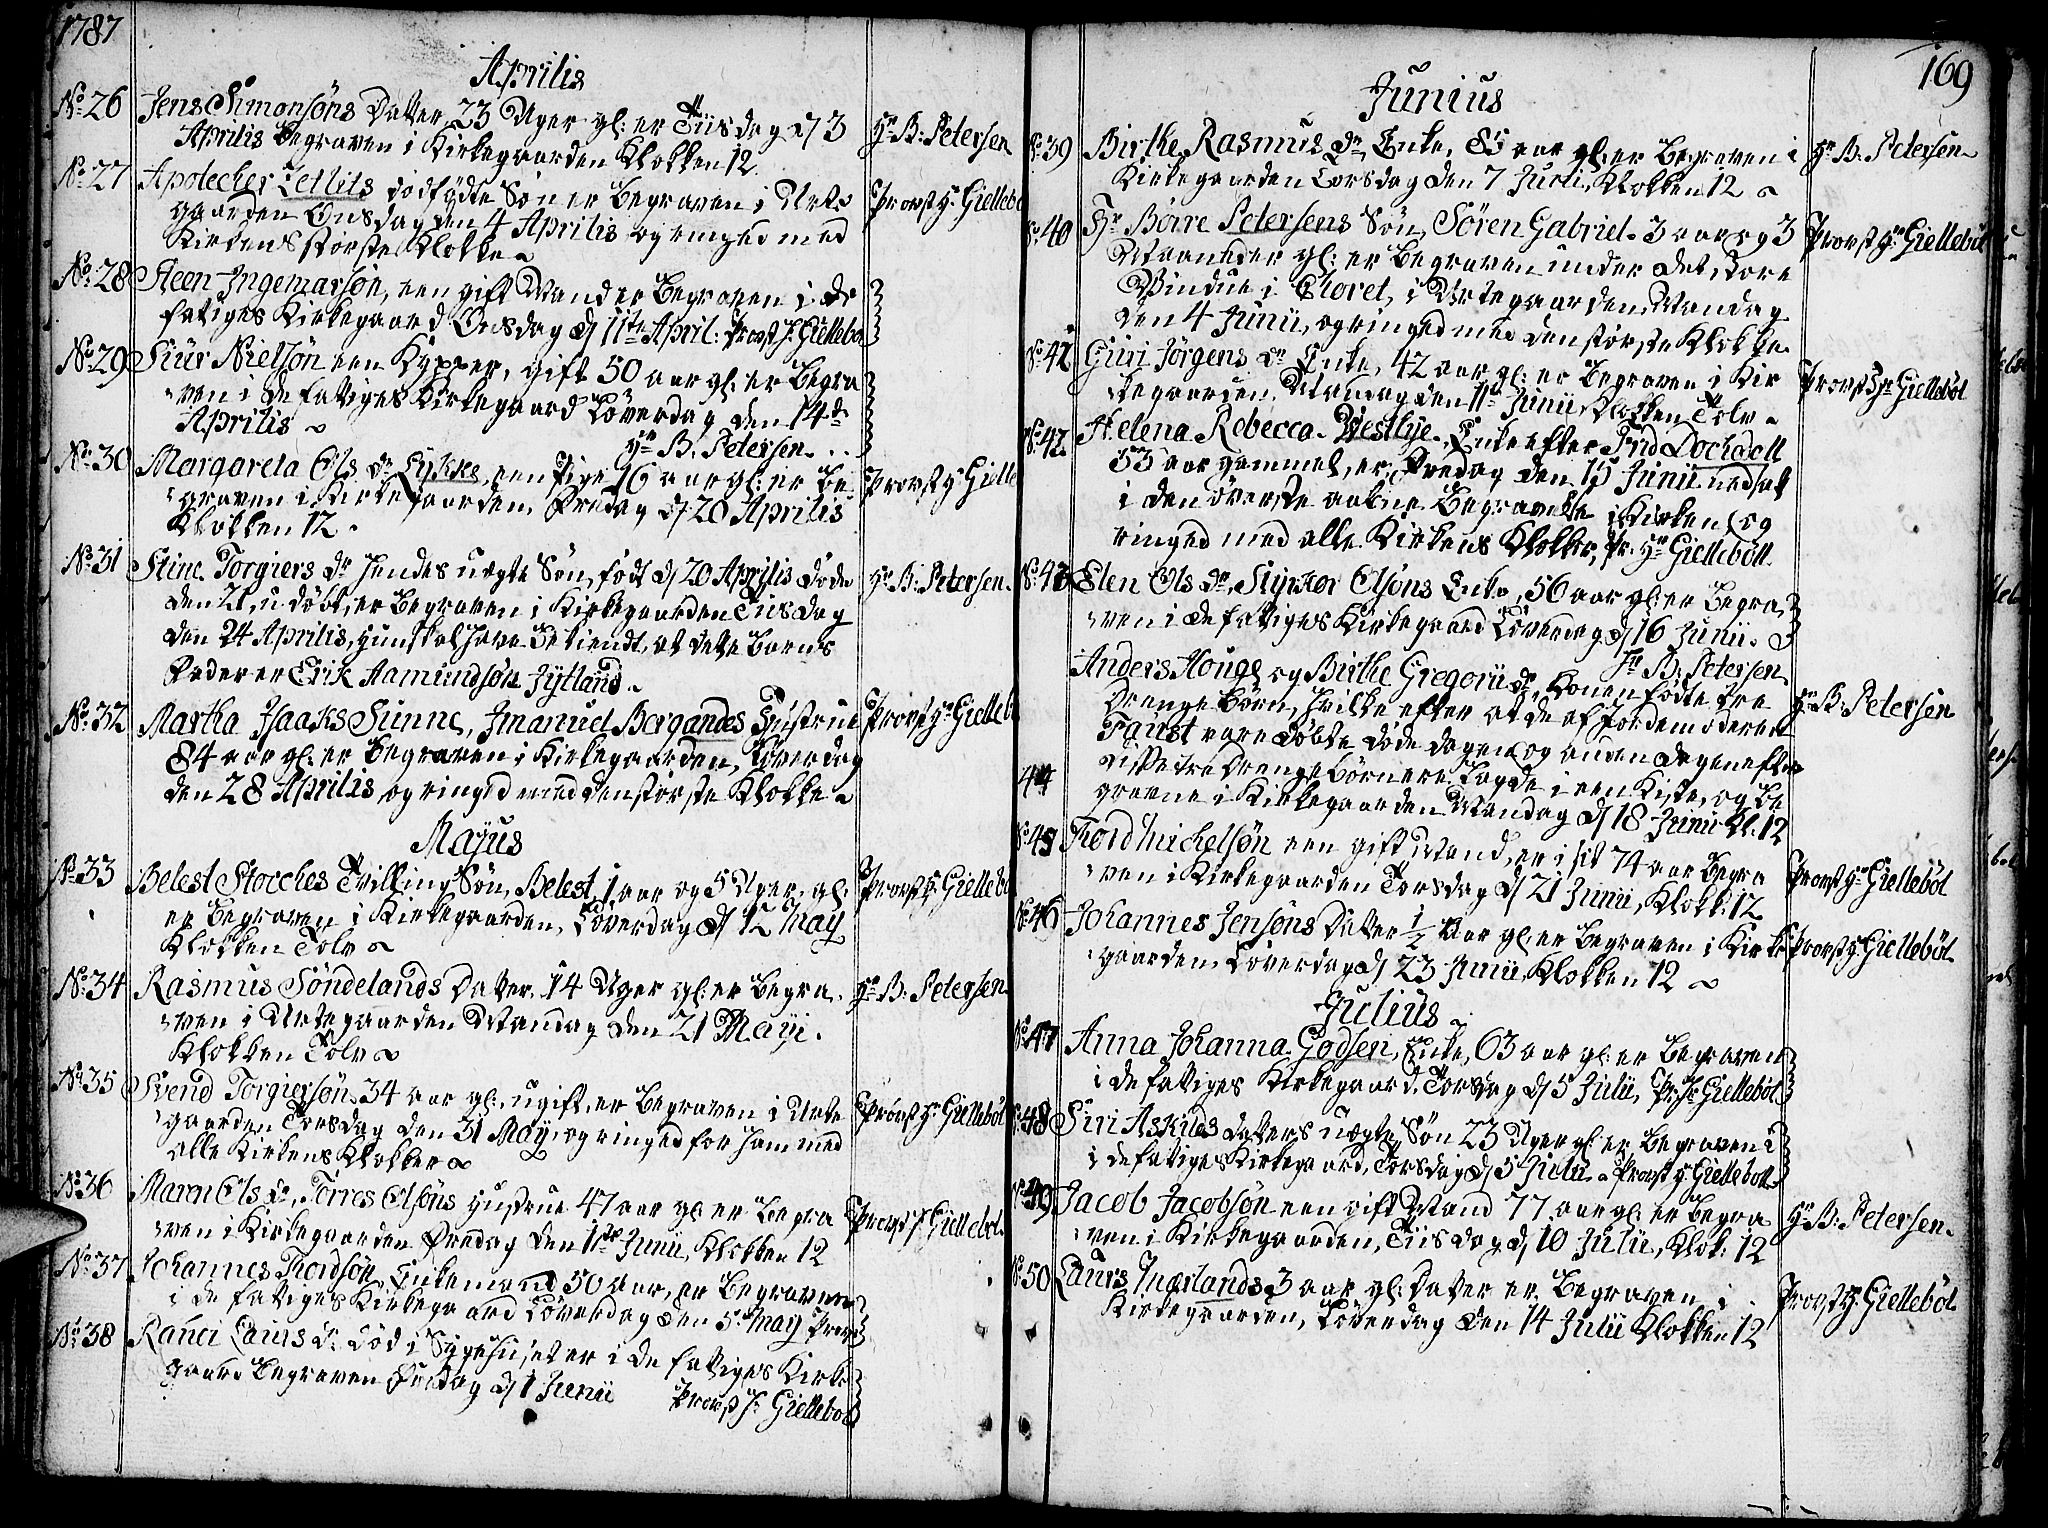 1787
Aprilis
No. 26 Jens Simonsøns Datter, 23 Uger gl: er Tiisdag d/ 3
Aprilis Begraven i Kirkegaarden Klokken 12. Hr. B: Petersen
No. 27 Apotecher Zetlits dødfødte Søn er Begraven i Urte
gaarden Onsdag den 4 Aprilis og ringed med Provst Hr. Giellebøl
Kirkens største Klokke
No. 28 Steen Ingemarsøn, een gift Mand er Begraven i de
fattiges Kirkegaard Onsdag d/ 11te April: Provst H. Giellebøl
No. 29 Siur Nielsøn een Kypper, gift 50 aar gl: er Begra
ven i de fattiges Kirkegaard Løverdag den 14de
Aprilis
Hr. B. Petersen
No. 30 Margareta Ols dr. Lykke, een Pige 16 aar gl: er Be
graven i Kirkegaarden, Fredag d/ 20 Aprilis Provst Hr. Gielle
Klokken 12.
No. 31 Stine Torgiers dr. hendes uægte Søn, født d/ 20 Aprilis døde
den 21, udøbt, er Begraven i Kirkegaarden Tiisdag Hr. B: Petersen.
den 24 Aprilis, hun skal have Bekiendt, at dette Barns
Fader er Erik Aamundsøn Jytland
No. 32 Martha Isaaks Sunne, Imanuel Bergandes Hustrue Provst Hr. Giellebøl
84 aar gl: er Begraven i Kirkegaarden, Løverdag
den 28 Aprilis og ringed med den største Klokke
Majus
No. 33 Belest Storches Tvilling Søn, Belest, 1 aar og 5 Uger gl: Provst H. Giellebøl
er Begraven i Kirkegaarden, Løverdag d/ 12 May
Klokken Tolv
No. 34 Rasmus Søndelands Datter 14 Uger gl: er Begra Hr. B: Petersen
ven i Urtegaarden Mandag den 21 Maji.
Klokken Tolv
No. 35 Svend Torgiersøn 34 aar gl: ugift, er Begraven i Urte
gaarden Torsdag den 31 May, og ringed for ham med Provst Hr. Giellebøl
alle Kirkens Klokker
No. 36 Maren Ols dr., Torres Olsøns Hustrue 47 aar gl: er Begra
ven i Kirkegaarden Fredag den 1te Junii, Klokken 12 Provst H. Giellebøl
No. 37 Johannes Thordsøn, Enkemand 50 aar, er Begraven
i de fattiges Kirkegaard Løverdag den 5. May Provst
No. 38 Ranci Laurs dr. død i Sygehuset er i de fattiges Kirke
gaard Begraven Fredag d/ 1 Junii
Provst H. Giellebøl
169
Junius
No. 39 Birthe Rasmus dr. Enke, 85 aar gl: er Begraven i Hr. B. Petersen
Kirkegaarden Torsdag den 7 Junii, Klokken 12
No. 40 Hr. Børre Petersens Søn, Søren Gabriel 3 aar og 3 Provst Hr. Giellebøl
Maaneder gl: er Begraven under det store
Vindue i Choret, i Urtegaarden, Mandag
den 4 Junii, og ringed med den største Klokke
No. 41 Guri Jørgens dr. Enke, 42 aar gl: er Begraven i Kir
kegaarden, Mandag den 11te Junii, Klokken Tolv Provst Hr. Giellebøl
No. 42 Helena Rebecca Westlye, Enke efter Frid Dochadell
53 aar gammel, er Fredag den 15 Junii nedsat
i den øverste aabne Begravelse i Kirken, og
ringed med alle Kirkens Klokker, Pr. Hr. Giellebøll
No. 43 Elen Ols dr., Siynkor Olsøns Enke, 56 aar gl: er Begra
ven i de fattiges Kirkegaard Løverdag d/ 16 Junii.
Hr. B: Petersen
Anders Houge og Birthe Gregorii dr., Konen fødte tre
Drenge Børn, hvilke efter at de af Jordemoderen Hr. B: Petersen
Faust vare døbte døde dagen og anden dagen efter
44 disse tre Drenge Børn ere lagde i een Kiste, og Be
gravne i Kirkegaarden Mandag d/ 18 Junii Kl. 12
No. 45 Thord Michelsøn een gift Mand, er i sit 74 aar Begra
ven i Kirkegaarden Torsdag d/ 21 Junii, Klok. 12 Provst Hr. Giellebøl
No. 46 Johannes Jensøns Datter 1/2 Aar gl: er Begraven i Kirke Provst H. Giellebøl
gaarden Løverdag d/ 23 Junii, Klokken 12
Julius
No. 47 Anna Johanna Godsen, Enke, 63 aar gl: er Begraven
i de fattiges Kirkegaard, Torsdag d/ 5 Julii, Pr. H. Giellebøl
No. 48 Siri Askilds Datters uægte Søn 23 Uger gl: er Begraven i
i de fattiges Kirkegaard, Torsdag d/ 5 Julii. Provst H. Giellebøl
No. 49 Jacob Jacobsøn een gift Mand 77 aar gl: er Begra
ven i Kirkegaarden, Tiisdag d/ 10 Julii, Klok: 12 Hr. B: Petersen
No. 50 Laurs Inærlands 3 aar gl: Datter er Begraven i
Kirkegaarden, Løverdag den 14 Julii Klokken 12 Provst H. Giellebøl